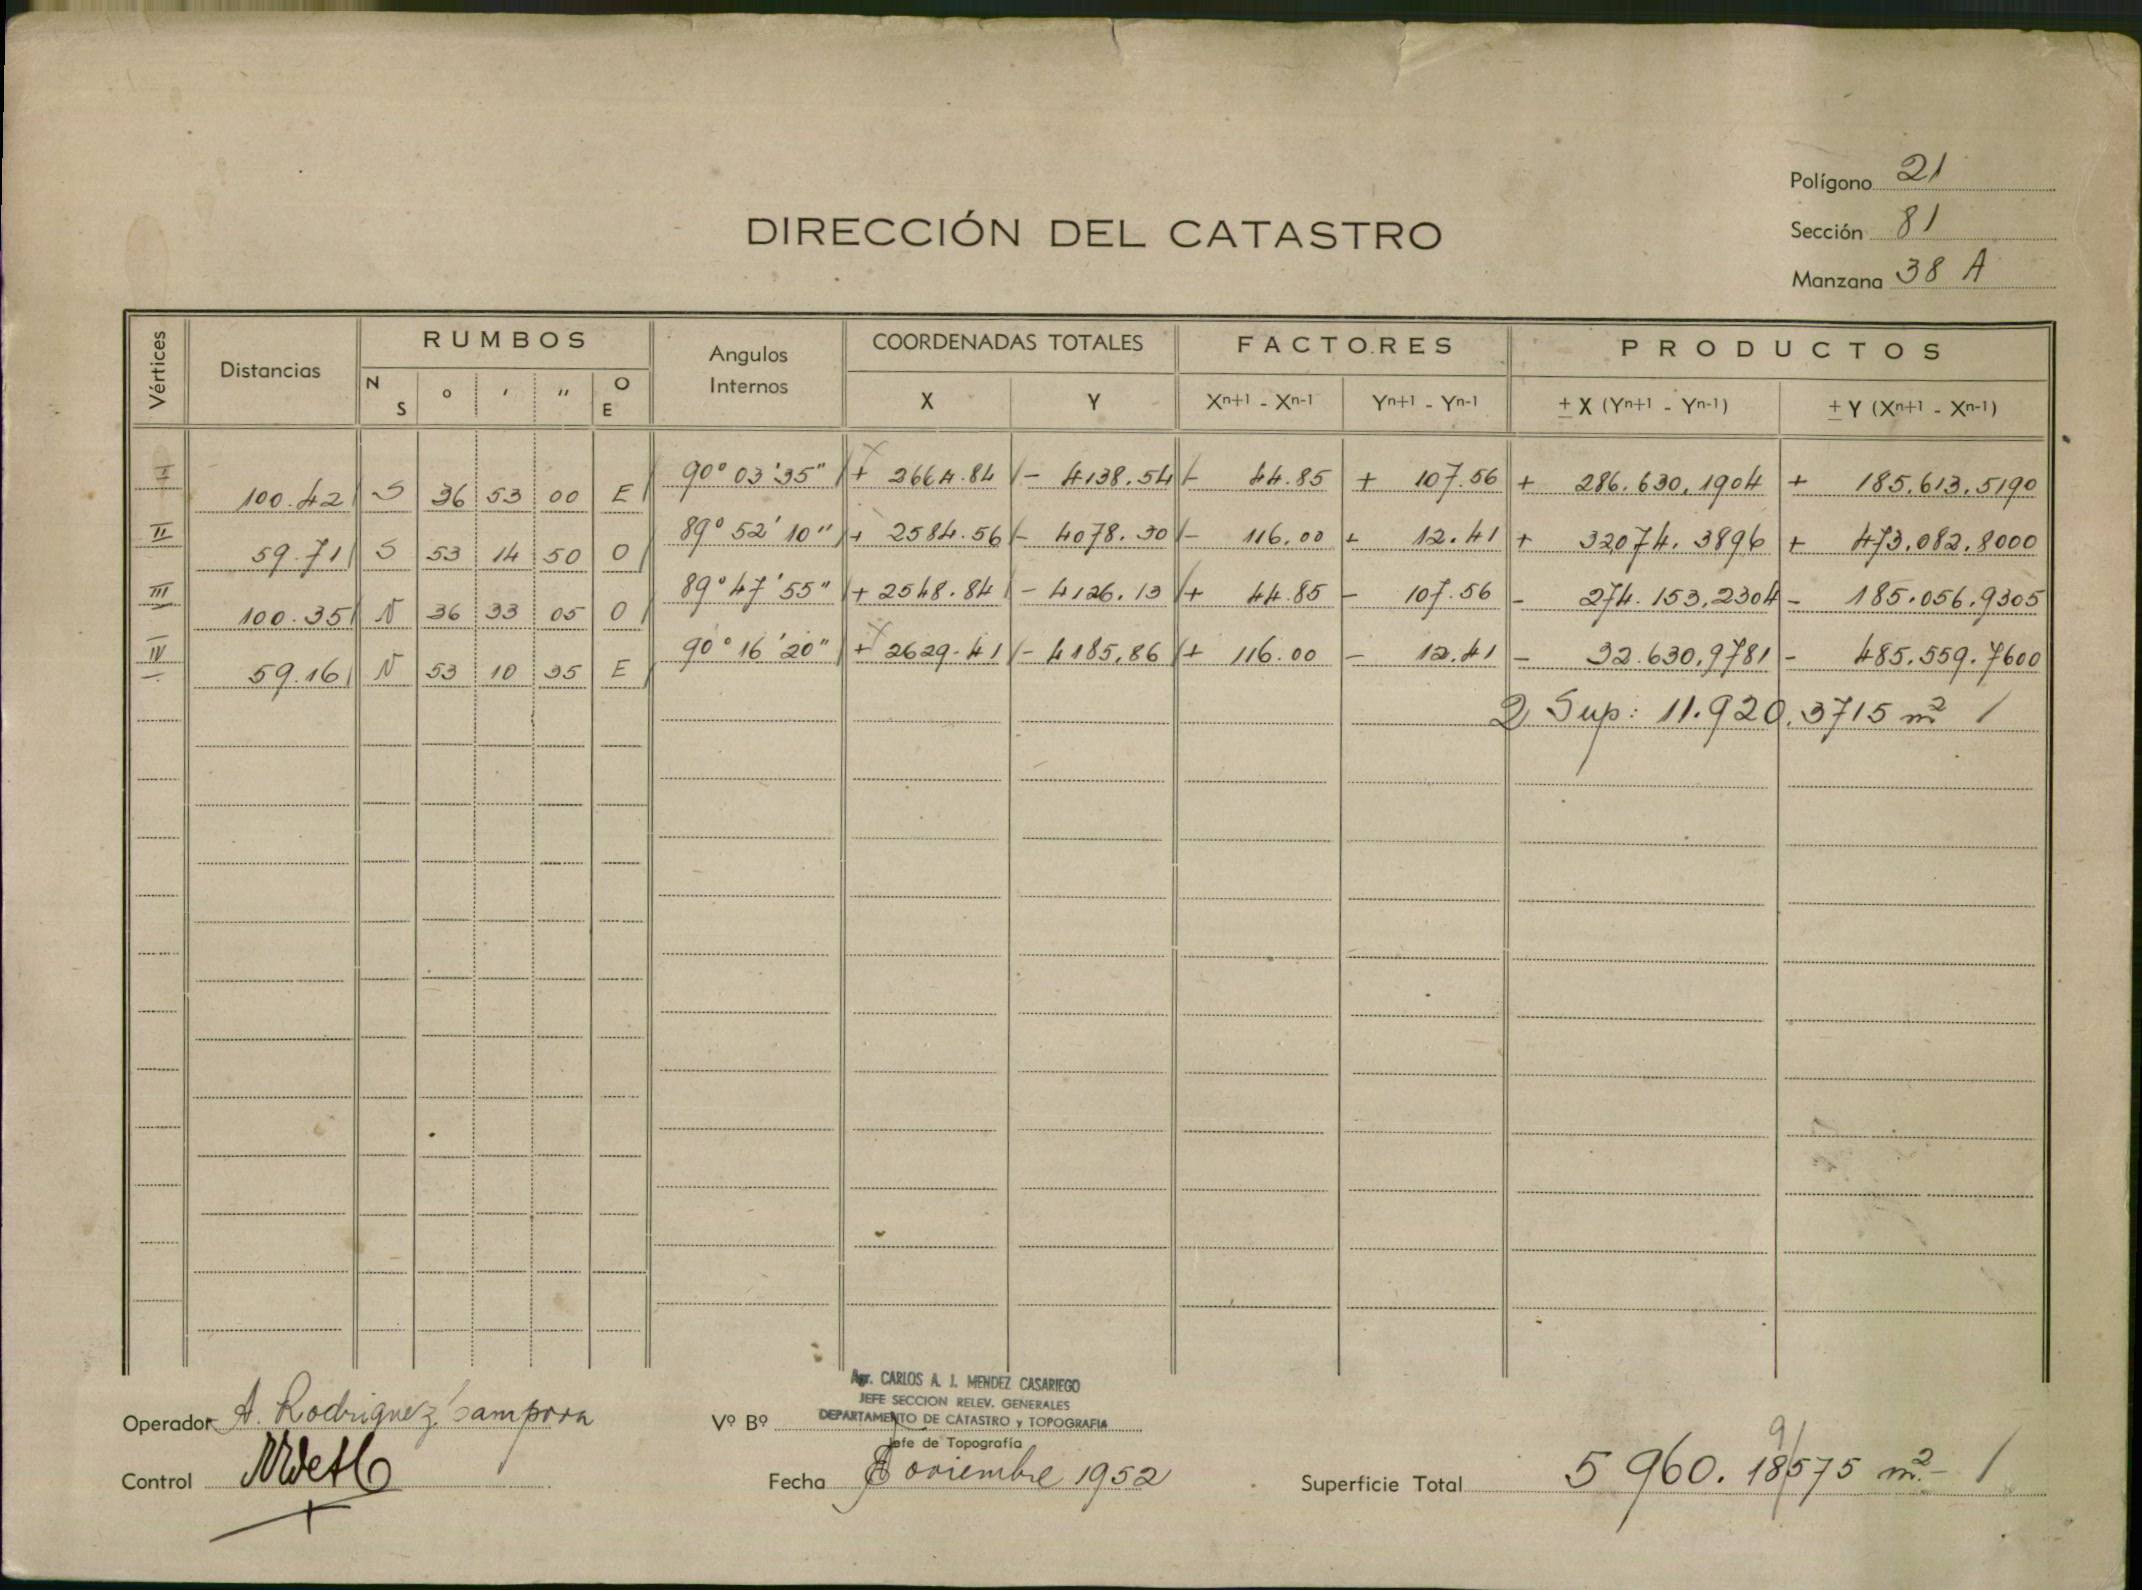 Polígono 21
DIRECCIÓN DEL CATASTRO
Sección 81
Manzana 38 A
Vértices Distancias RUMBOS Angulos Internos COORDENADAS TOTALES FACTORES PRODUCTOS
N S ° ' " O E X Y Xn+1 - Xn-1 Yn+1 - Yn-1 ± X (Yn+1 - Yn-1) ± Y (Xn+1 - Xn-1)
I 100.42 S 36 53 00 E 90° 03' 35" + 2664.84 - 4138.54 - 44.85 + 107.56 + 286.630,1904 + 185.613,5190
II 59.71 S 53 14 50 O 89° 52' 10" + 2584.56 - 4078.30 - 116.00 + 12.41 + 32074.3896 + 473.082.8000
III 100.35 N 36 33 05 O 89° 47' 55" + 2548.84 - 4126.13 + 44.85 - 107.56 - 274.153,2304 - 185.056,9305
IV 59.16 N 53 10 35 E 90° 16' 20" + 2629.41 - 4185,86 + 116.00 - 12.41 - 32.630,9781 - 485.559.7600
2 Sup: 11.920,3715 m²
Agr. CARLOS A. J. MENDEZ CASARIEGO
JEFE SECCION RELEV. GENERALES
Operador A. Rodriguez Vº Bº DEPARTAMENTO DE CATASTRO y TOPOGRAFIA
Jefe de Topografía
Control Fecha Noviembre 1952 Superficie Total 5960.18575 m²
9